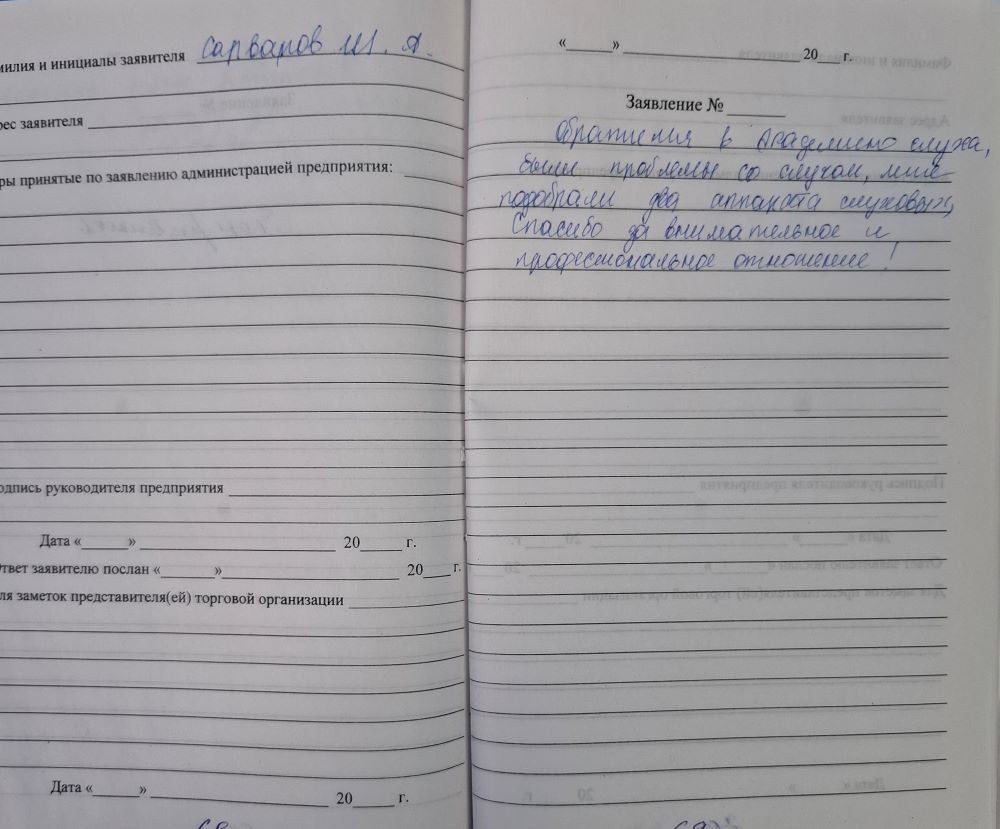 милия и инициалы заявителя Сарваров Ш. А.
рес заявителя
ры принятые по заявлению администрацией предприятия:
одпись руководителя предприятия
Дата «______» ______ 20____ г.
Ответ заявителю послан «______» ______ 20____ г.
ля заметок представителя(ей) торговой организации
Дата «______» ______ 20____ г.
«______» ______ 20___ г.
Заявление № ______
Обратился в Академию слуха,
были проблемы со слухом, мне
подобрали два аппарата слуховых,
Спасибо за внимательное и
профессиональное отношение!